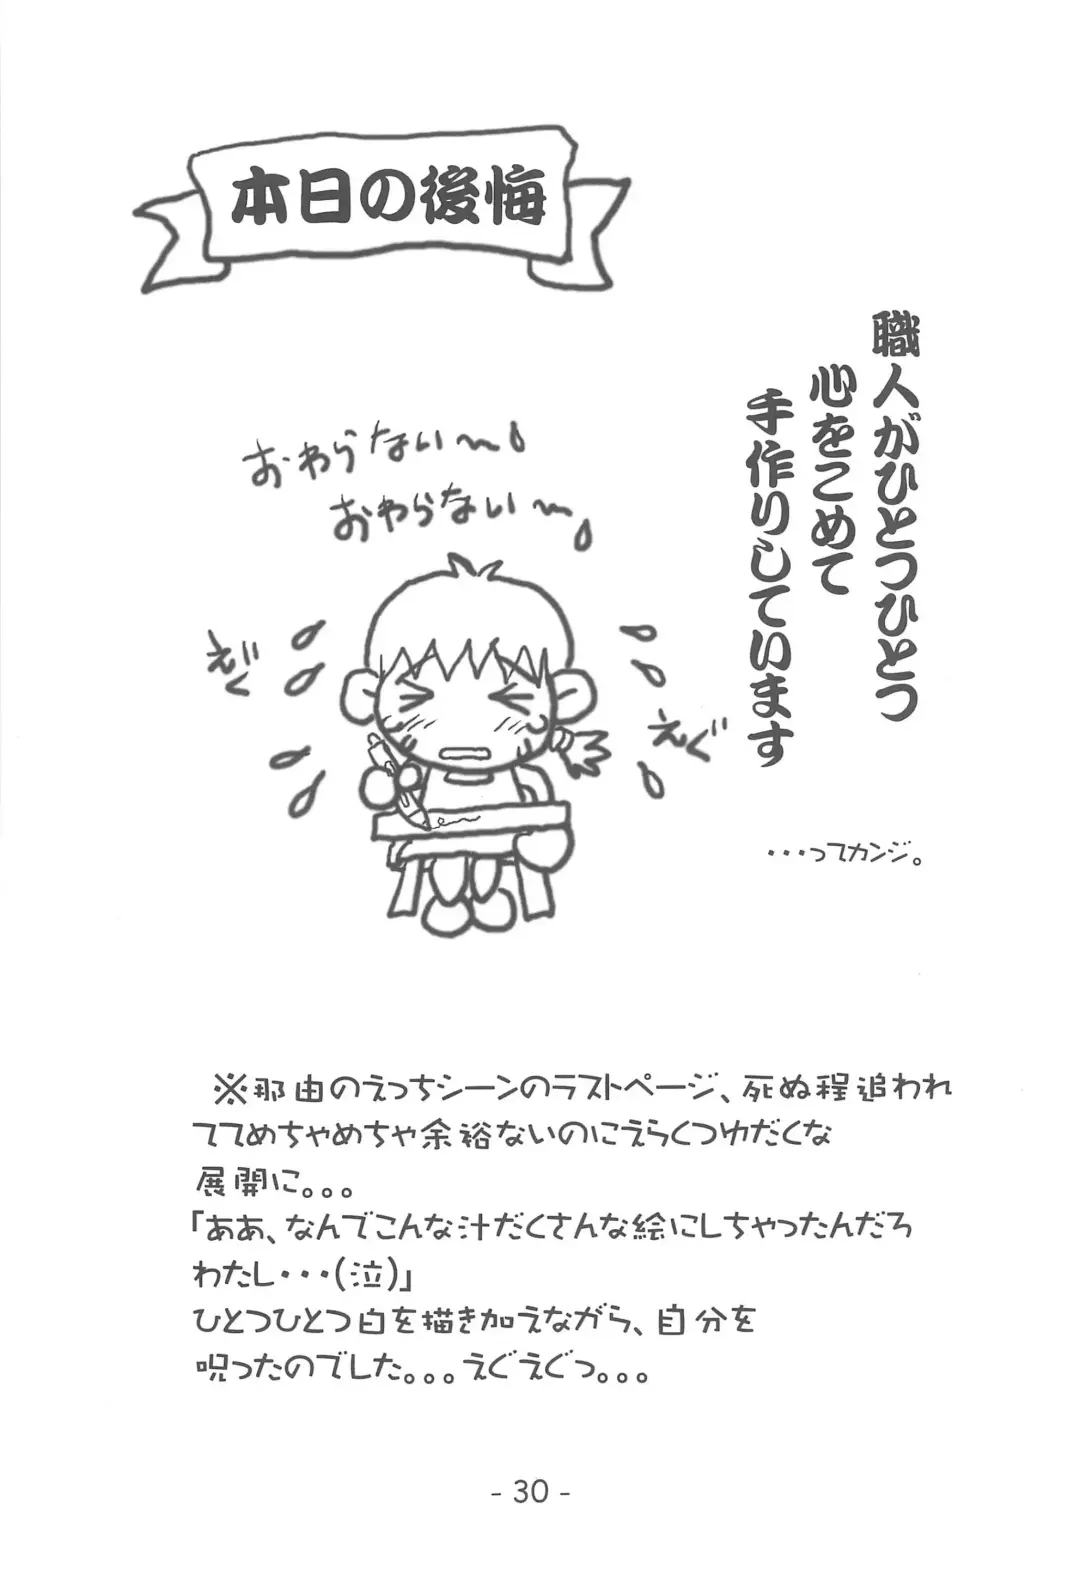 本日の後悔
職人がひとつひとつ
心をこめて
手作りしています
おわらない〜
おわらない〜
えぐ
えぐ
・・・ってカンジ。
※那由のえっちシーンのラストページ、死ぬ程追われ
ててめちゃめちゃ余裕ないのにえらくつゆだくな
展開に。。。
「ああ、なんでこんな汁だくさんな絵にしちゃったんだろ
わたし・・・(泣)」
ひとつひとつ白を描き加えながら、自分を
呪ったのでした。。。えぐえぐっ。。。
- 30 -